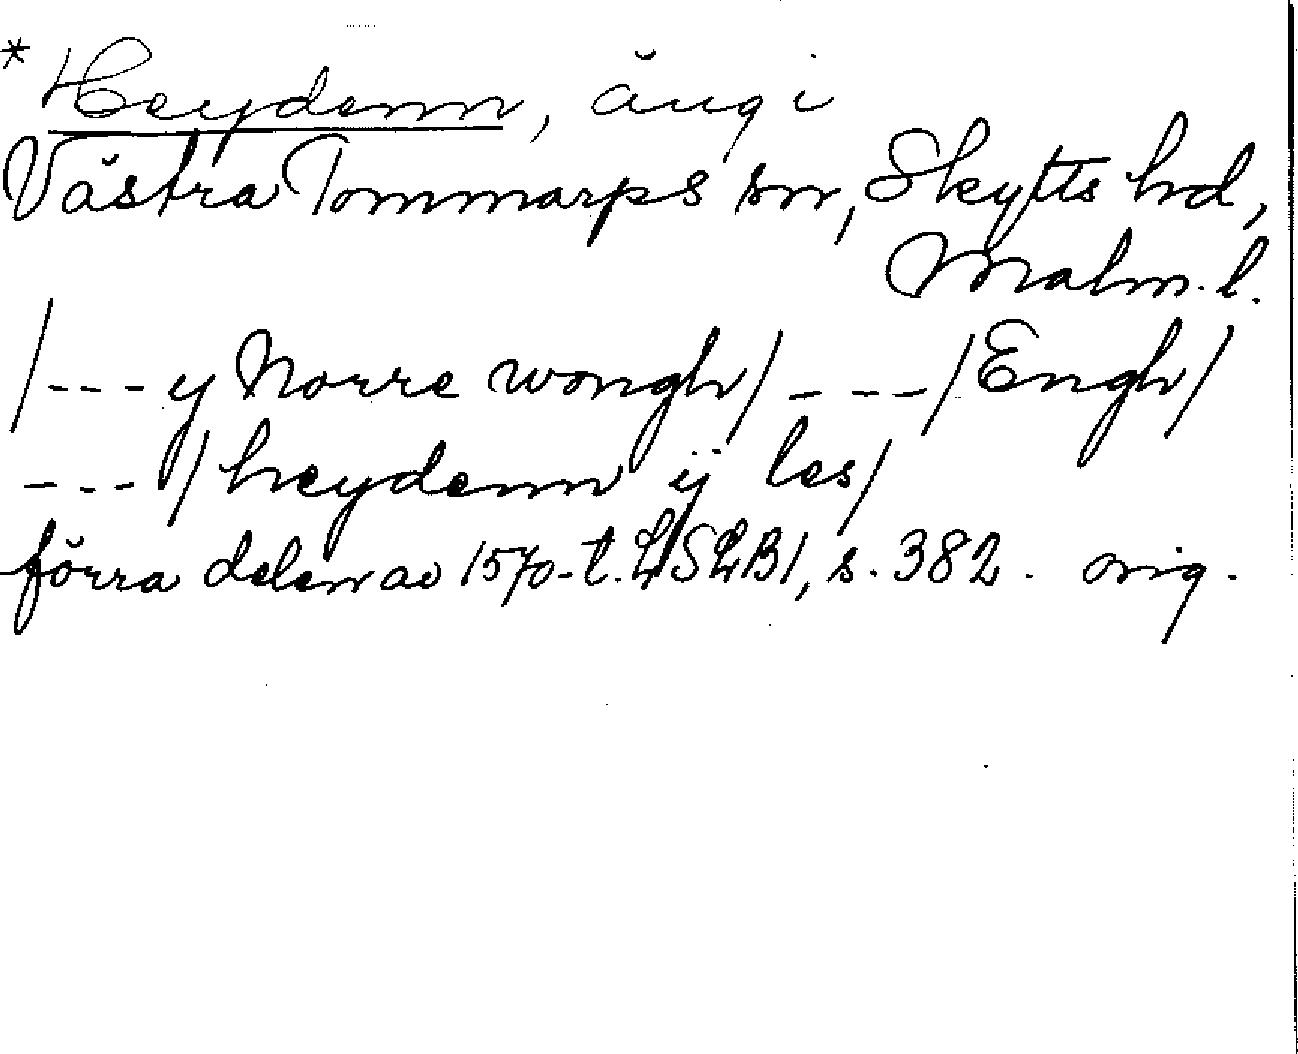 * Heydenn, äng i
Västra Tommarps sn, Skytts hd,
Malm. l.
/--- y Norre wongh/ ---/Engh/
---/ heydenn ij les/
förra delen av 1570-t. LSLB1, s. 382. orig.